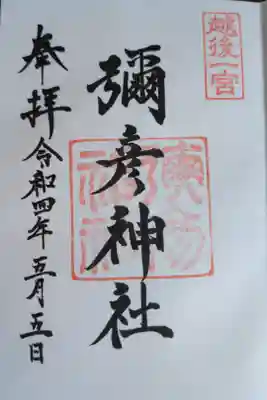 越後一宮
彌彦神社
奉拝 令和四年五月五日